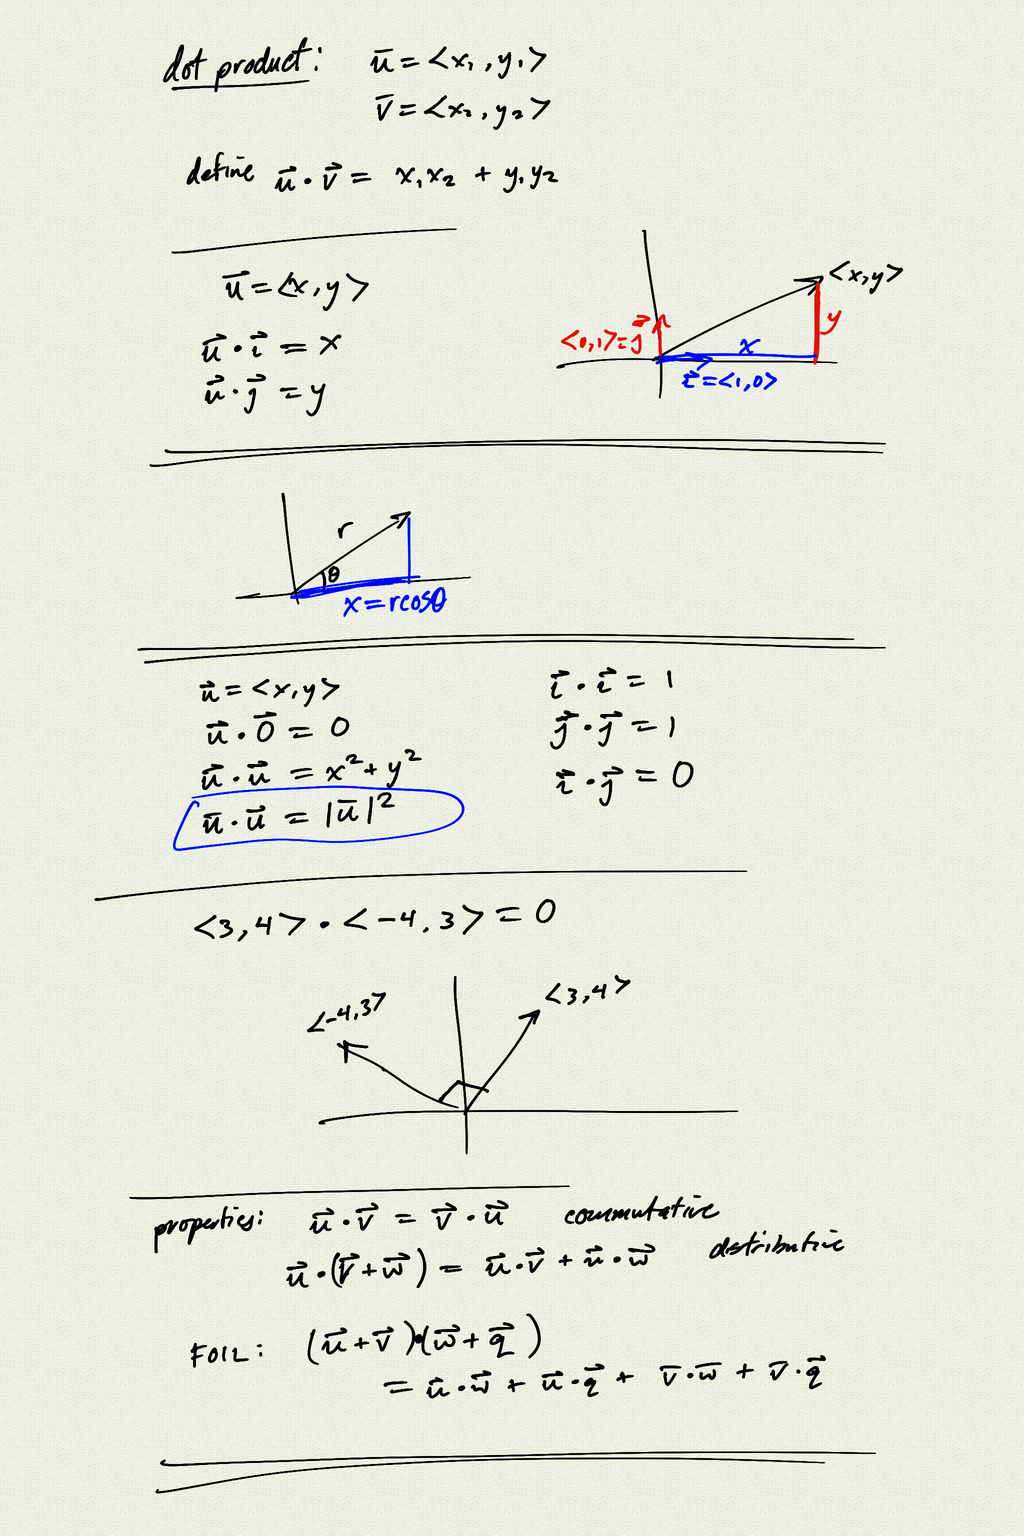 dot product: u̅ = <x₁, y₁>
v̅ = <x₂, y₂>
define u⃗ · v⃗ = x₁x₂ + y₁y₂
u⃗ = <x, y>
u⃗ · i⃗ = x
u⃗ · j⃗ = y
<x, y>
<0,1> = j⃗
y
x
i⃗ = <1,0>
r
θ
x = rcosθ
u⃗ = <x, y>
u⃗ · 0⃗ = 0
u⃗ · u⃗ = x² + y²
u̅ · u⃗ = |u̅|²
i⃗ · i⃗ = 1
j⃗ · j⃗ = 1
i⃗ · j⃗ = 0
<3, 4> · <-4, 3> = 0
<-4, 3>
<3, 4>
properties: u⃗ · v⃗ = v⃗ · u⃗ commutative
u⃗ · (v⃗ + w⃗) = u⃗ · v⃗ + u⃗ · w⃗ distributive
FOIL: (u⃗ + v⃗) · (w⃗ + q⃗)
= u⃗ · w⃗ + u⃗ · q⃗ + v̅ · w̅ + v̅ · q⃗